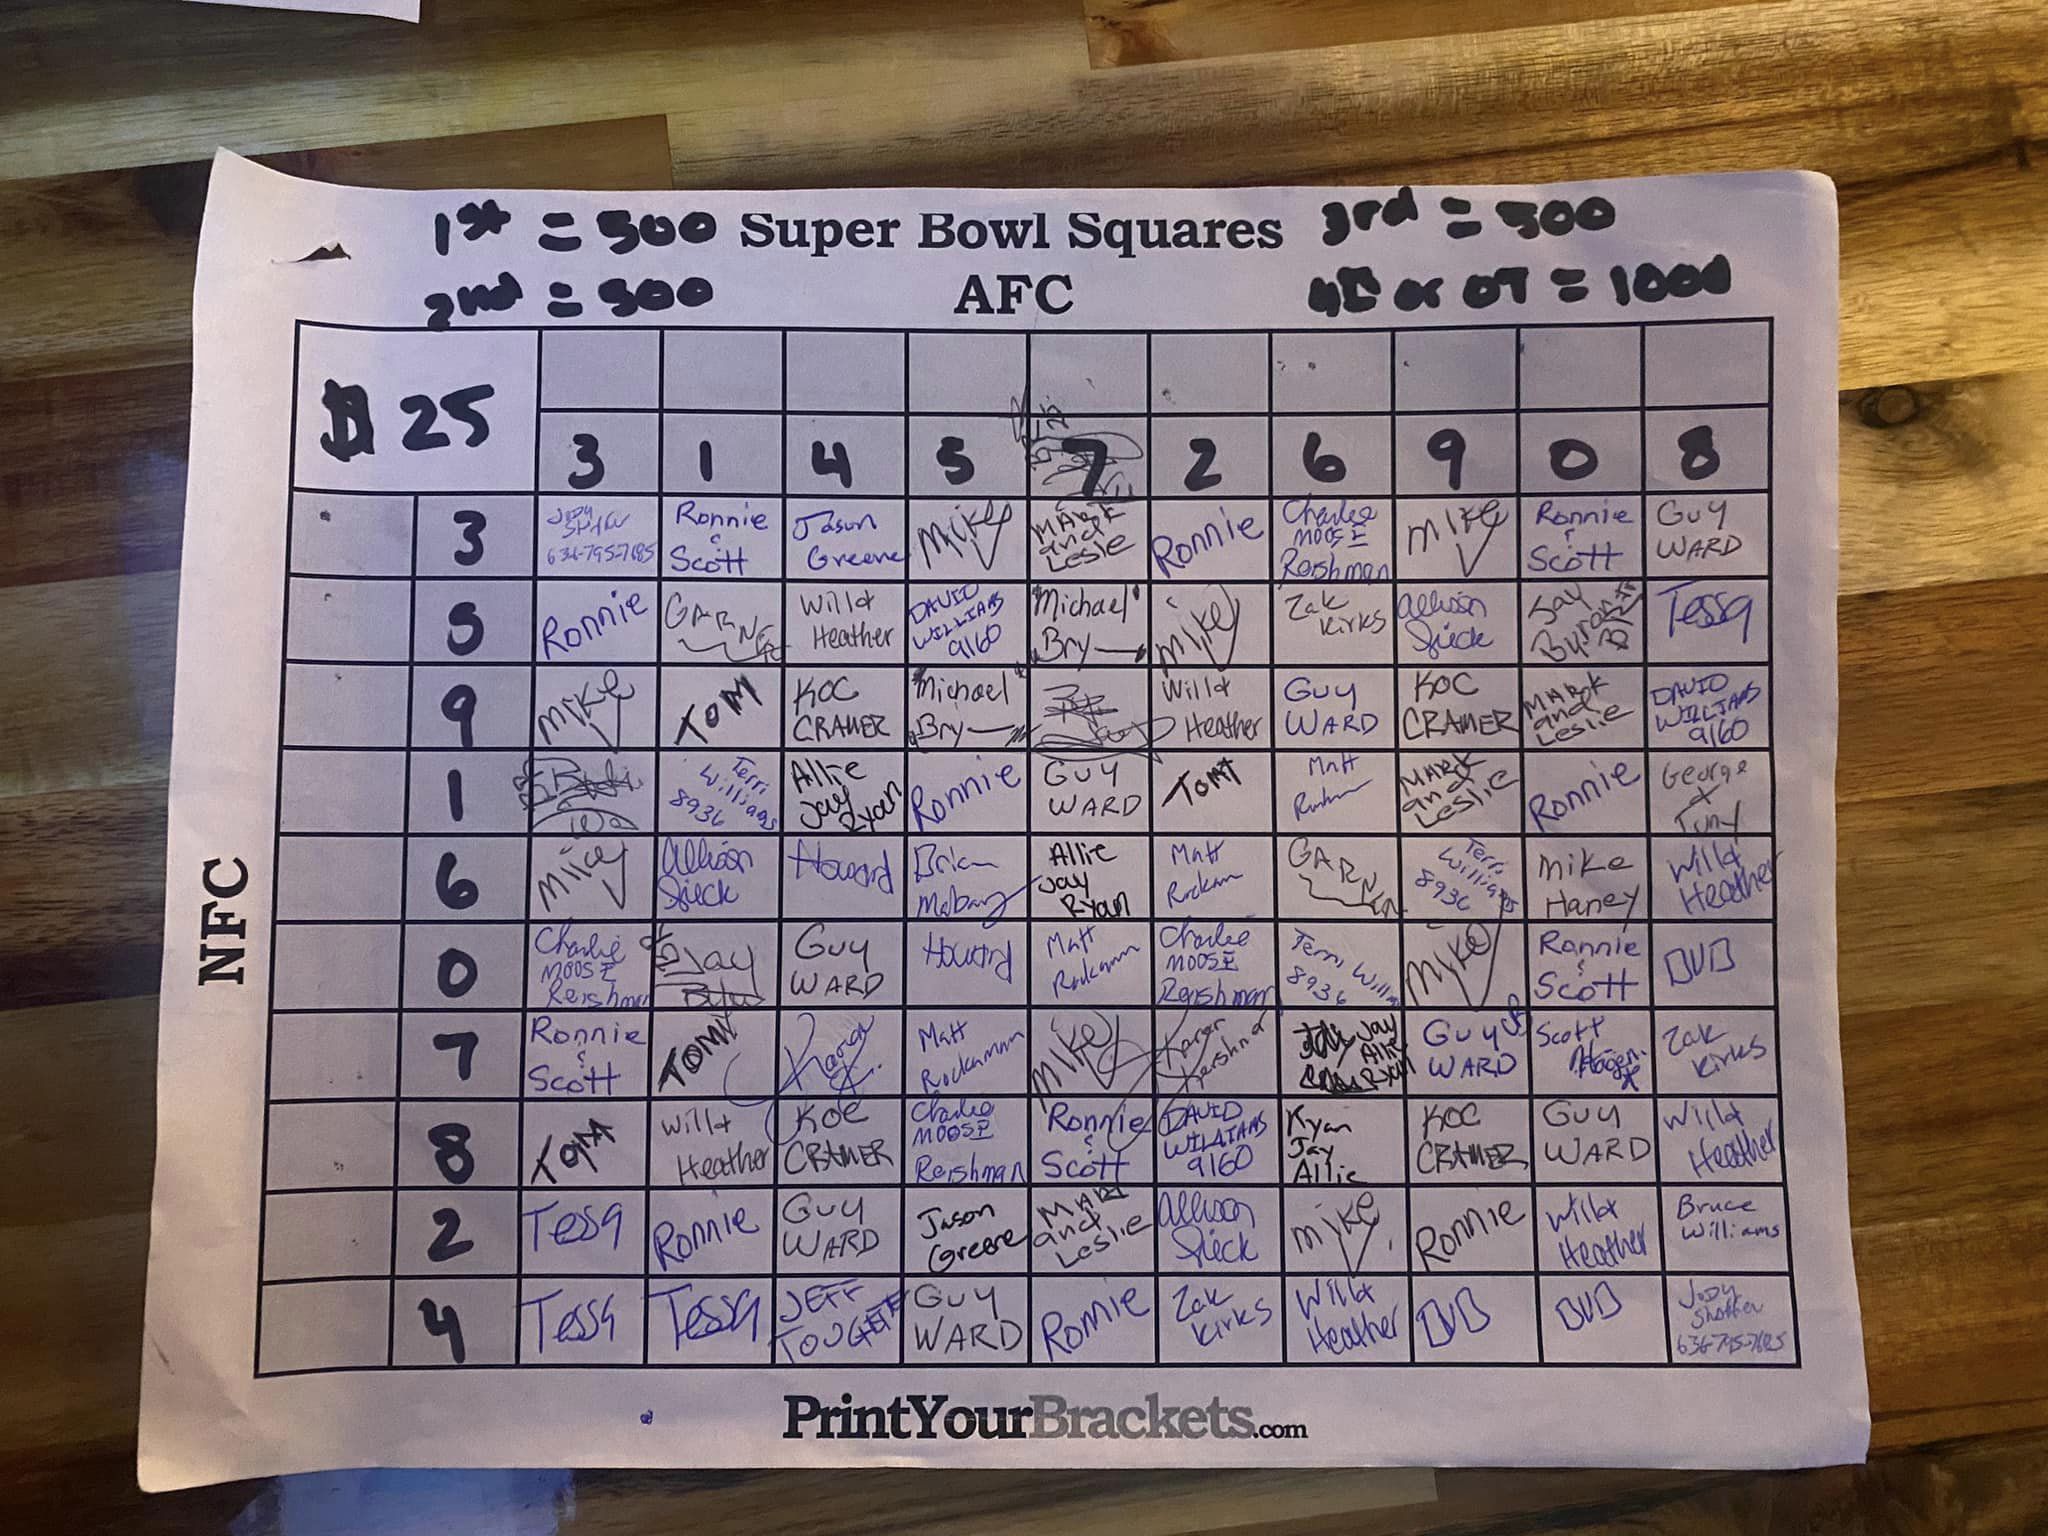 1st = 500 Super Bowl Squares 3rd = 500
2nd = 500 AFC or OT = 1000
$ 25
3 1 4 5 7 2 6 9 0 8
NFC
3
Jody
636-795-7685
Ronnie
&
Scott
Jason
Greene
Mike
MARK
and
Leslie
Ronnie
Charlie
MOOSE
Reishman
Mike
Ronnie
&
Scott
GUY
WARD
5
Ronnie
GARNER
Will &
Heather
DAVID
WILLIAMS
9160
Michael
Bry
Mike
Zak
Kirks
Allison
Sieck
Jay
Tessa
9
Mike
TOM
KOC
CRAMER
Michael
Bry
Will &
Heather
GUY
WARD
KOC
CRAMER
MARK
and
Leslie
DAVID
WILLIAMS
9160
1
Terri
Williams
8936
Allie
Jay
Ryan
Ronnie
GUY
WARD
TOM
Matt
MARK
and
Leslie
Ronnie
George
&
Tony
6
Mike
Allison
Sieck
Howard
Brian
Allie
Jay
Ryan
Matt
GARNER
Terri
Williams
8936
Mike
Haney
Will &
Heather
0
Charlie
MOOSE
Reishman
Jay
GUY
WARD
Howard
Matt
Charlie
MOOSE
Reishman
Terri
8936
Mike
Ronnie
&
Scott
BUB
7
Ronnie
&
Scott
TOM
Matt
Mike
Karen
Jay
Allie
Ryan
GUY
WARD
Scott
Zak
Kirks
8
TOM
Will &
Heather
KOC
CRAMER
Charlie
MOOSE
Reishman
Ronnie
&
Scott
DAVID
WILLIAMS
9160
Ryan
Jay
Allie
KOC
CRAMER
GUY
WARD
Will &
Heather
2
Tessa
Ronnie
GUY
WARD
Jason
Greene
MARK
and
Leslie
Allison
Sieck
Mike
Ronnie
Will &
Heather
Bruce
Williams
4
Tessa
Tessa
JEFF
GUY
WARD
Ronnie
Zak
Kirks
Will &
Heather
BUB
BUB
Jody
Shaffer
636-795-7685
PrintYourBrackets.com